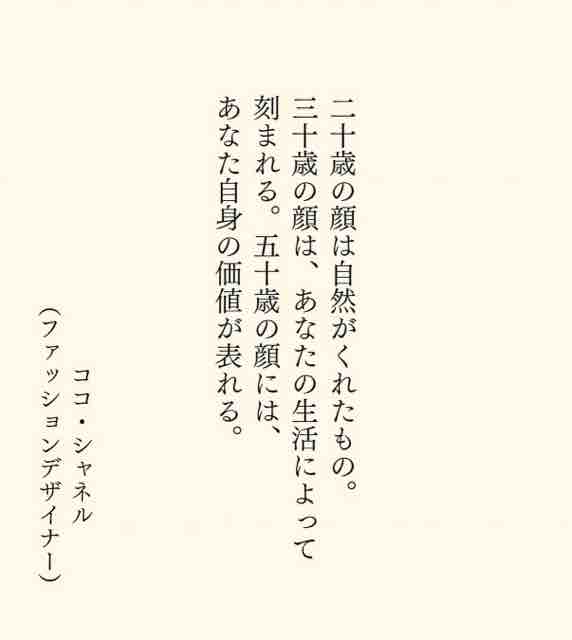 二十歳の顔は自然がくれたもの。
三十歳の顔は、あなたの生活によって
刻まれる。五十歳の顔には、
あなた自身の価値が表れる。
ココ・シャネル
（ファッションデザイナー）